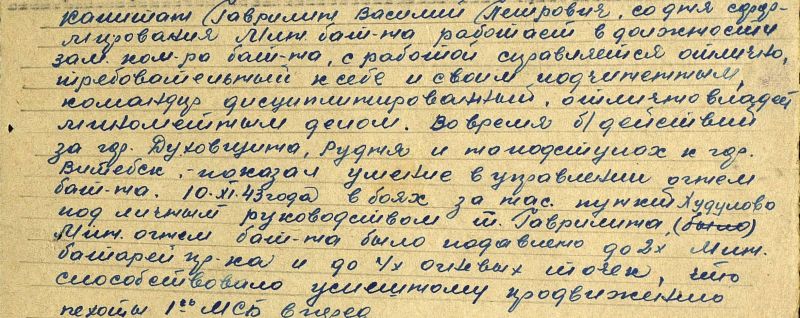 Капитан Гаврилин Василий Петрович, со дня сфор-
мирования Мин. бат-на работает в должности
зам. ком-ра бат-на, с работой справляется отлично,
требовательный к себе и своим подчиненным,
командир дисциплинированный, отлично владеет
минометным делом. Во время б/действий
за гор. Духовщина, Рудня и на подступах к гор.
Витебск, - показал умение в управлении огнем
бат-на. 10.XI.43 года в боях за нас. пункт Худулово
под личным руководством т. Гаврилина, (было)
Мин. огнем бат-на было подавлено до 2х Мин.
батарей пр-ка и до 4х огневых точек, что
способствовало успешному продвижению
пехоты 1го МСБ вперед